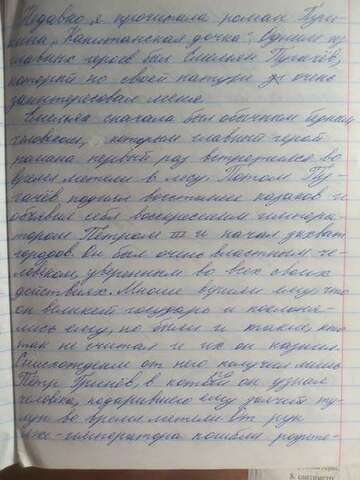 Недавно, я прочитала роман Пуш-
кина „Капитанская дочка". Одним из
главных героев был Емельян Пугачёв,
который по своей натуре очень
заинтересовал меня.
Емельян сначала был обычным бедным
человеком, с которым главный герой
романа первый раз встретился во
время метели в лесу. Потом Пу-
гачёв поднял восстание казаков и
объявил себя воскресшим импера-
тором Петром III и начал захват
городов. Он был очень властным че-
ловеком, уверенным во всех своих
действиях. Многие верили ему, что
он великий государь и поклоня-
лись ему, но были и такие, кто
так не считал и их он казнил.
Снисхождение от него получил лишь
Пётр Гринёв, в котором он узнал
человека, подарившего ему заячий ту-
луп во время метели. От рук
лже-императора погибли родите-